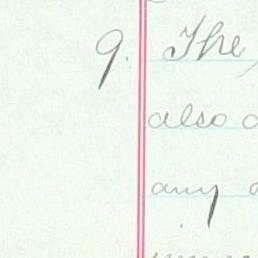 9. The
also
any